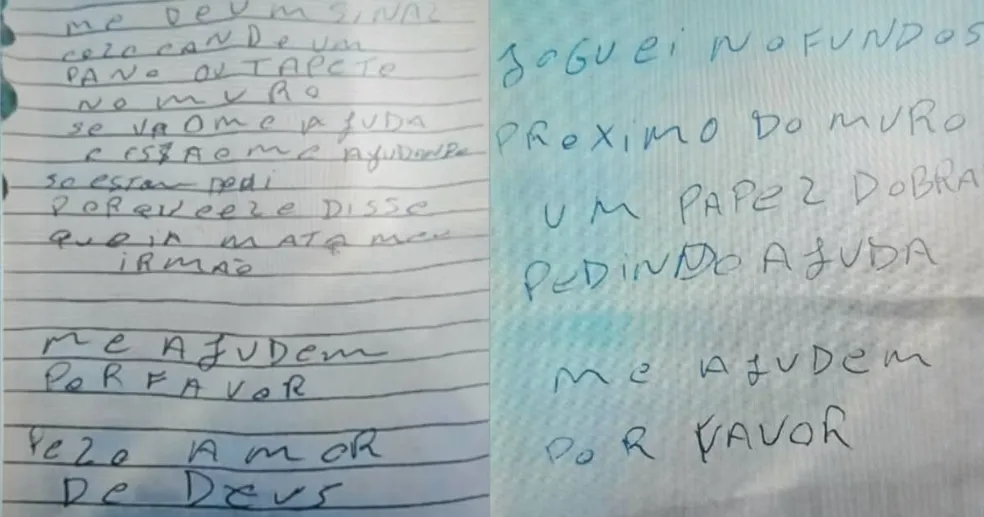 ME DEU UM SINAL
COLOCANDO UM
PANO OU TAPETE
NO MURO
SE VAO ME AJUDA
E ESTÃO ME AJUDANDO
SO
PORQUE ELE DISSE
QUE IA MATA MEU
IRMÃO
ME AJUDEM
POR FAVOR
PELO AMOR
DE DEUS
JOGUEI NO FUNDOS
PROXIMO DO MURO
UM PAPEL DOBRA
PEDINDO AJUDA
ME AJUDEM
POR FAVOR